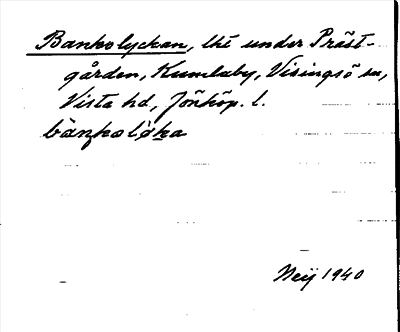 Bankolyckan, lht under Präst-
gården, Kumlaby, Visingsö sn,
Vista hd, Jönköp. l.
bàŋkolỳka
Neij 1940